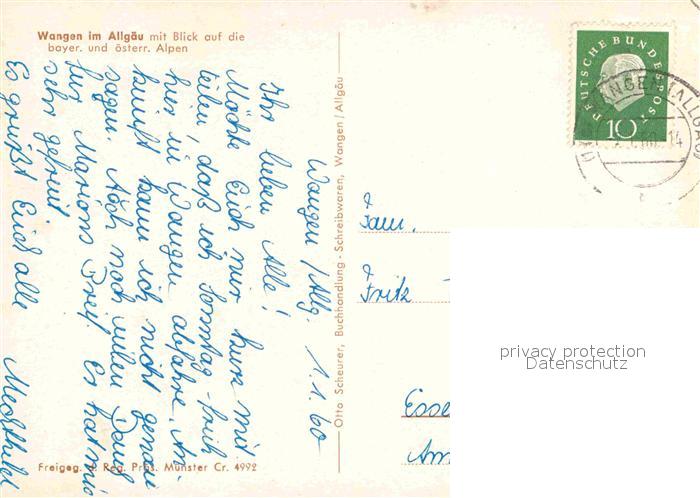 Wangen im Allgäu mit Blick auf die
bayer. und österr. Alpen
Wangen/Allg. 1.1.60
Ihr lieben Alle!
Möchte Euch nur kurz mit-
teilen, daß ich Sonntag-früh
hier in Wangen abfahre. An-
kunft kann ich nicht genau
sagen. Auch noch vielen Dank
für Marions Breif. Es hat mich
sehr gefreut.
Es grüßt Euch alle
Mechthild
Freigeg. d. Reg. Präs. Münster Cr. 4992
Otto Scheurer, Buchhandlung - Schreibwaren, Wangen/Allgäu
DEUTSCHE BUNDESPOST
10
Fam.
Fritz
Esse
Am
privacy protection
Datenschutz